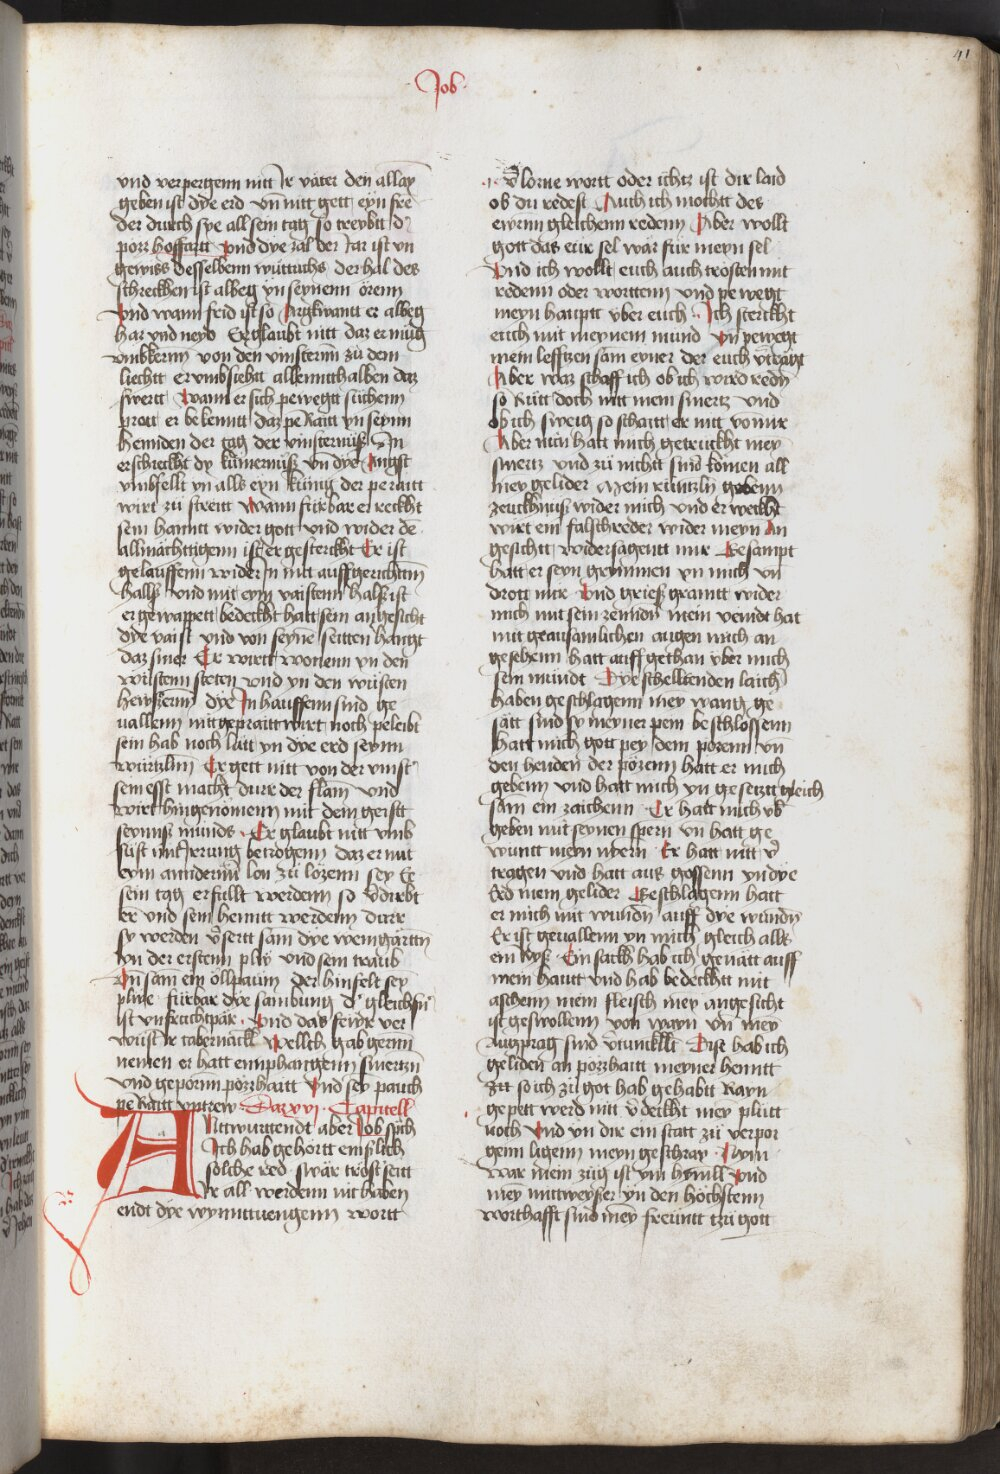 41
Job
und verpergenn nitt Ir väter den allay
geben ist dye erd vn̄ nitt gett eyn fre
der durch sye all sein tag so treybtt d'
porr hoffartt und dye zal der Jar ist vn
gewiss desselbenn wüttrichs der hal des
schreckhen ist albeg yn seynenn örenn
Vnd wann frid ist so Argkwantt er albeg
har vnd neyd Er glaubt nitt daz er müg
vmbkernn von den vinsternn zü dem
liechtt er vmbsiehtt allennthalben daz
swertt Wann er sich pewegtt süchenn
prott er bekenntt daz pe Raitt yn seynn
hennden der tag der vinsternüss In
erschreckht dy kümernüß vn̄ dye Angst
vmbfellt yn alls eyn künig der peraitt
wirt zü streitt Wann fürbar er reckht
sein hanntt wider gott und wider dē
allmächttigenn ist er gesterckht Er ist
gelauffenn wider In mit auffgerichttm
hallß vnd mit eym vaistenn halß ist
er gewappett bedeckht hatt sein angesicht
dye vaist vnd von seyne seitten hangt
daz smer Er wirtt wonenn yn den
wüstenn steten vnd yn den wüsten
hewsernn dye In hauffenn sind ge
uallenn nitt gepraitt wirt noch peleibt
sein hab noch lätt yn dye erd seynn
würtzlnn Er gett nitt von der vinst'
sein esst macht durr der flam vnd
wirt hingenömenn mit dem geistt
seynnß munds Er glaubt nitt vmb
süst mit Irrung betrogenn daz er mit
eym anndernn lon zü lözenn sey Ee
sein tag erfullt werdenn so v̄dirbt
er vnd sein henntt werdenn durr
sy werden v̄sertt sam dye weingärttn
yn der erstenn plü vnd sein traub
Vn̄ sam ein öllpaum der hinfelt sey
plüe fürbar dye sambung d' gleichsn'
ist vnfruchtpär Vnd das fewr ver
wüst Ir tabernackl Wellch gab gernn
nemen er hatt emphangenn smertzn
vnd gepornn pözzhaitt Vnd sey pauch
pe Raitt vntrew Daz xvi Capitell
Anttwurttendt aber Job sprach
Ich hab gehörtt emslich
solche red swär tröst seitt
Ir all werdenn nit haben
endt dye wynnttwengenn wortt
v̄lorne wortt oder ichtz ist dir laid
ob du redest Auch ich möchtt des
ewrnn gleichenn redenn Aber wollt
gott das eür sel wär für meyn sel
Vnd ich wollt euch auch trösten mit
redenn oder worttenn vnd pewegt
meyn hauptt vber euch Ich sterckht
euch mit meynem mund vn̄ pewegt
mein lefftzen sam eyner der euch v̄trägt
Aber waz schaff ich ob ich wird redn̄
so Rütt doch nitt mein smertz vnd
ob ich sweig so schaitt er nit von mir
Aber nün hatt mich getruckht mey
smertz vnd zü nichtt sind kömen all
mey gelider Mein rüntzln gebenn
zeuckhnüß wider mich vnd er weckht
wirt ein falschreder wider meyn An
gesichtt widersagentt mir Besampt
hatt er seyn grymmen yn mich vn̄
drott mir Vnd grießgramtt wider
mich mit sein zenndn̄ mein veindt hat
mit grausämlichen augen mich an
gesehenn hatt auff gethan vber mich
sein mündt Dye scheltenden laich
haben geschlagenn mey wang ge
sätt sind sy meyner pein beschlossenn
Hatt mich gott pey dem pözenn vn̄
den henden der pözenn hatt er mich
gebenn vnd hatt mich yn gesetztt gleich
sam ein zaichenn Er hatt mich vb'
geben mit seynen spern vn̄ hatt ge
wuntt mein niern Er hatt nitt v̄
tragen vnd hatt aus gossenn yn dye
Erd mein gelider Beschlagenn hatt
er mich mit wundn̄ auff dye wundn̄
Er ist geuallenn yn mich gleich alls
ein Ryß Ein sackh hab ich genätt auff
mein hautt vnd hab bedeckhtt mit
aschenn mein fleisch mey angesicht
ist geswollenn von wayn vn̄ mey
Augprag sind vertunckllt Dise hab ich
geliden an pözzhaitt meyner henntt
zü so ich zü got hab gehabtt Rayn
gepett werd nitt v̄deckht mey plütt
noch Vnd yn dir ein statt zü verpor
genn ligenn meyn geschray Nym
war mein züg ist ym hymll Vnd
mey mittweyser yn den höchstenn
worthafft sind mey freuntt tzü gott